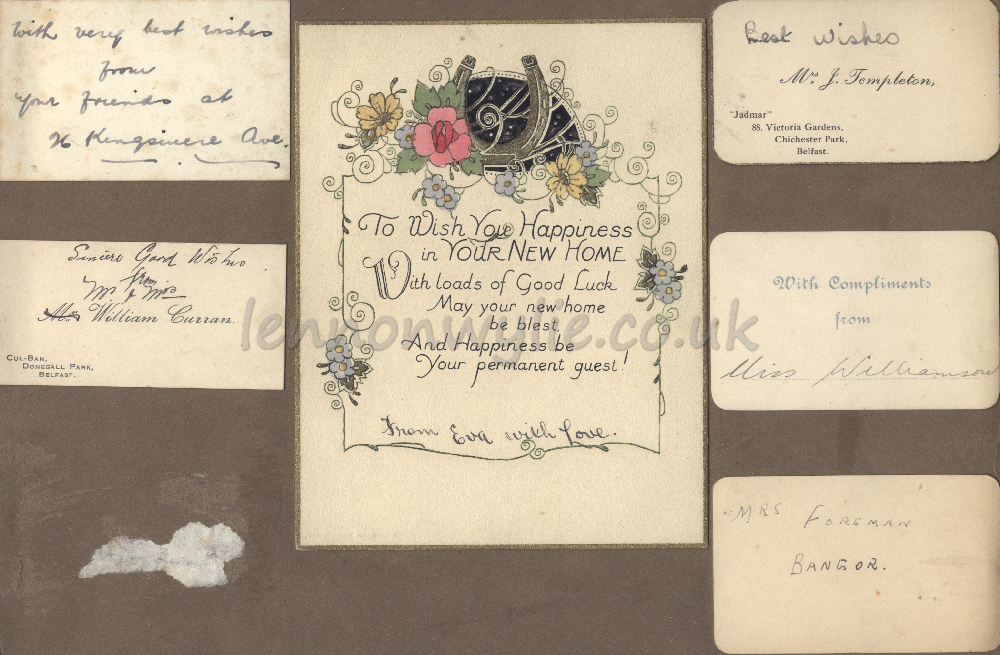 With very best wishes
from
Your friends at
Kingsmere Ave.
Sincere Good Wishes
from
Mr & Mrs
Mrs William Curran.
Cul-Ban,
Donegall Park,
Belfast.
To Wish You Happiness
in Your New Home
With loads of Good Luck
May your new home
be blest,
And Happiness be
Your permanent guest!
From Eva with Love.
lennonwylie.co.uk
Best Wishes
Mrs J. Templeton,
"Jadmar"
88. Victoria Gardens,
Chichester Park,
Belfast.
With Compliments
from
Miss Williamson
MRS FOREMAN
BANGOR.